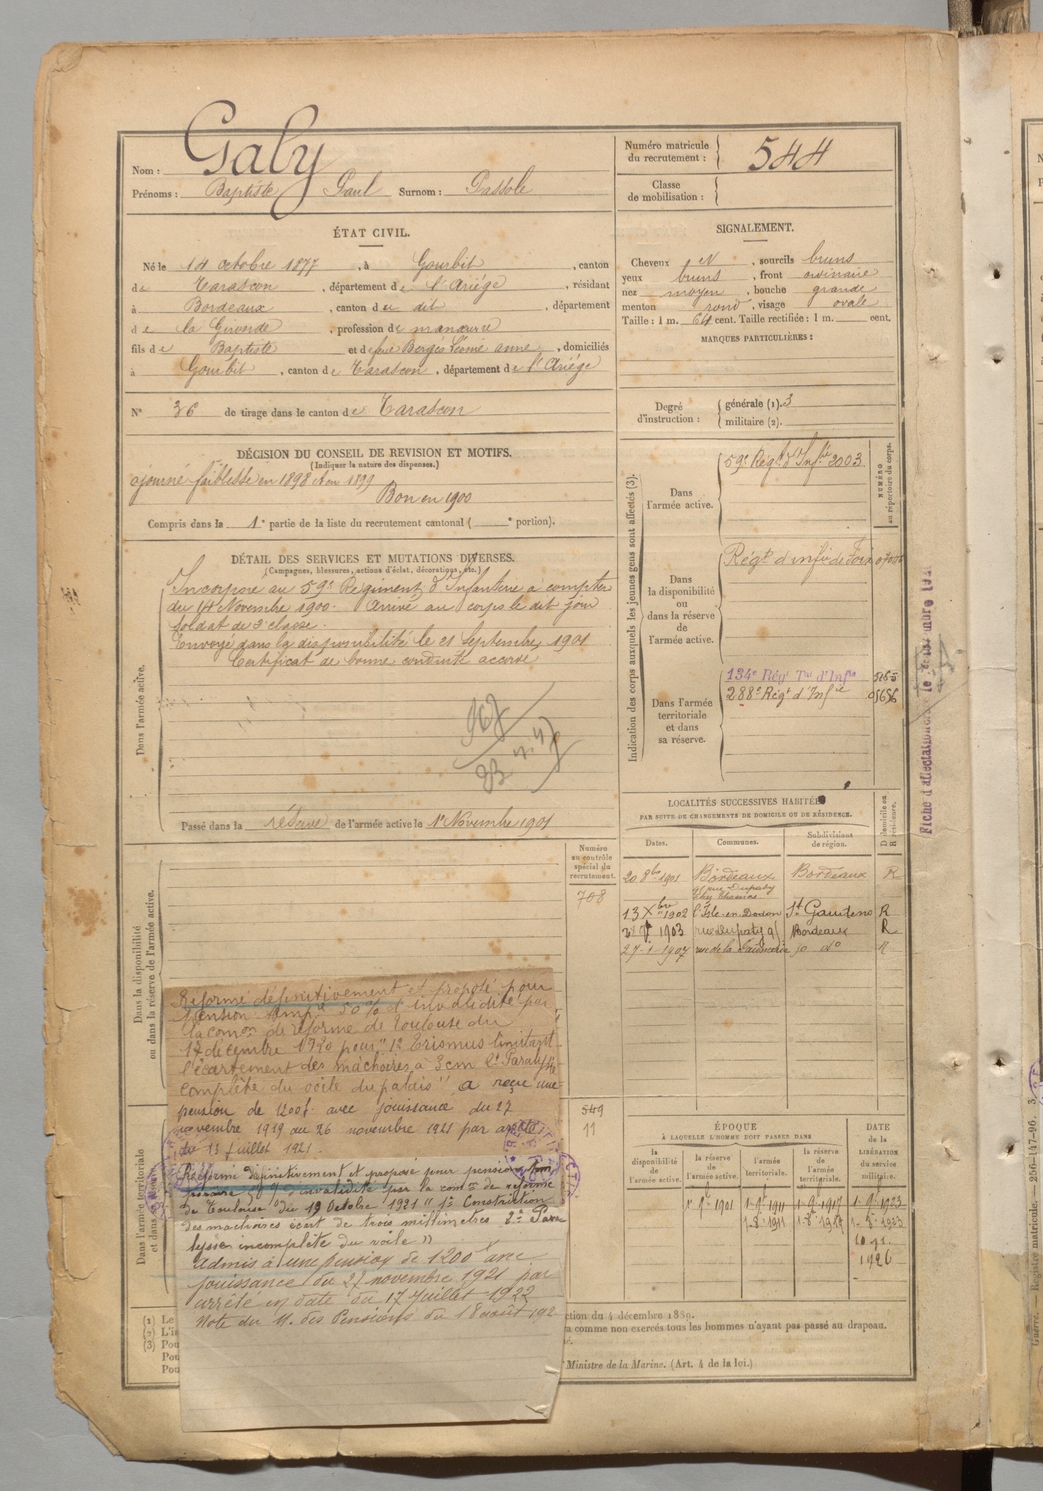 Nom : Galy
Prénoms : Baptiste Paul Surnom : Dassole
Numéro matricule du recrutement : 544
Classe de mobilisation :
ÉTAT CIVIL.
Né le 14 octobre 1877, à Gourbit, canton
de Tarascon, département de l'Ariége, résidant
à Bordeaux, canton de dit, département
de la Gironde, profession de manœuvre
fils de Baptiste et de feue Bergès anne, domiciliés
à Gourbit, canton de Tarascon, département de l'Ariége
N° 36 de tirage dans le canton de Tarascon
SIGNALEMENT.
Cheveux N, sourcils bruns
yeux bruns, front ordinaire
nez moyen, bouche grande
menton rond, visage ovale
Taille : 1 m. 64 cent. Taille rectifiée : 1 m. cent.
MARQUES PARTICULIÈRES :
Degré d'instruction : générale (1). 3
militaire (2).
DÉCISION DU CONSEIL DE REVISION ET MOTIFS.
(Indiquer la nature des dispenses.)
ajourné faiblesse en 1898 et en 1899
Bon en 1900
Compris dans la 1e partie de la liste du recrutement cantonal ( e portion).
DÉTAIL DES SERVICES ET MUTATIONS DIVERSES.
(Campagnes, blessures, actions d'éclat, décorations, etc.)
Dans l'armée active.
Incorporé au 59e Régiment d'Infanterie à compter
du 14 Novembre 1900. Arrivé au corps le dit jour
soldat de 2e classe.
Envoyé dans la disponibilité le 21 Septembre 1901
Certificat de bonne conduite accordé
Passé dans la réserve de l'armée active le 1er Novembre 1901
Indication des corps auxquels les jeunes gens sont affectés (3).
NUMÉRO au répertoire du corps.
Dans l'armée active.
59e Régt d'Infie 2003
Dans la disponibilité ou dans la réserve de l'armée active.
Régt d'infie de Foix
Dans l'armée territoriale et dans sa réserve.
134e Régt Tal d'Infie
288e Régt d'Infie
LOCALITÉS SUCCESSIVES HABITÉES
PAR SUITE DE CHANGEMENTS DE DOMICILE OU DE RÉSIDENCE.
Dates. Communes. Subdivisions de région. D domicile ou R résidence.
20 8bre 1901 Bordeaux Bordeaux R
91 rue Dupaty
13 Xbre 1902 l'Isle-en-Dodon St Gaudens R
1903 rue Dupaty 91 Bordeaux R
27-1-1907 rue de la do R
Dans la disponibilité ou dans la réserve de l'armée active.
Numéro au contrôle spécial du recrutement.
708
Réformé définitivement et proposé pour
pension tempre 50 % d'invalidité par
la comon de réforme de Toulouse du
17 décembre 1920 pour "1e Trismus limitant
l'écartement des mâchoires à 3cm 2e Paralysie
complète du voile du palais" a reçu une
pension de 1200f. avec jouissance du 27
novembre 1919 au 26 novembre 1921 par arrêté
du 13 juillet 1921.
Réformé définitivement et proposé pour pension tem
poraire 50 % d'invalidité par la comon de réforme
de Toulouse du 19 Octobre 1921 "1e Constriction
des machoires écart de trois millimètres 2e Para
lysie incomplète du voile"
Admis à une pension de 1200f avec
jouissance du 27 novembre 1921 par
arrêté en date du 17 Juillet 1922
Note du M. des Pensions du 18 août 192
Dans l'armée territoriale et dans
549
11
ÉPOQUE
À LAQUELLE L'HOMME DOIT PASSER DANS
la disponibilité de l'armée active. la réserve de l'armée active. l'armée territoriale. la réserve de l'armée territoriale.
DATE de la LIBÉRATION du service militaire.
1-9-1901 1-9-1911 1-9-1917 1-9-1923
1-8-1911 1-8-1917 1-8-1923
1926
ction du 4 décembre 1889.
a comme non exercés tous les hommes n'ayant pas passé au drapeau.
Ministre de la Marine. (Art. 4 de la loi.)
(1) Le
(2) L'i
(3) Pou
Pou
Pou
Guerre. — Registre matricule. — 256-147-96.